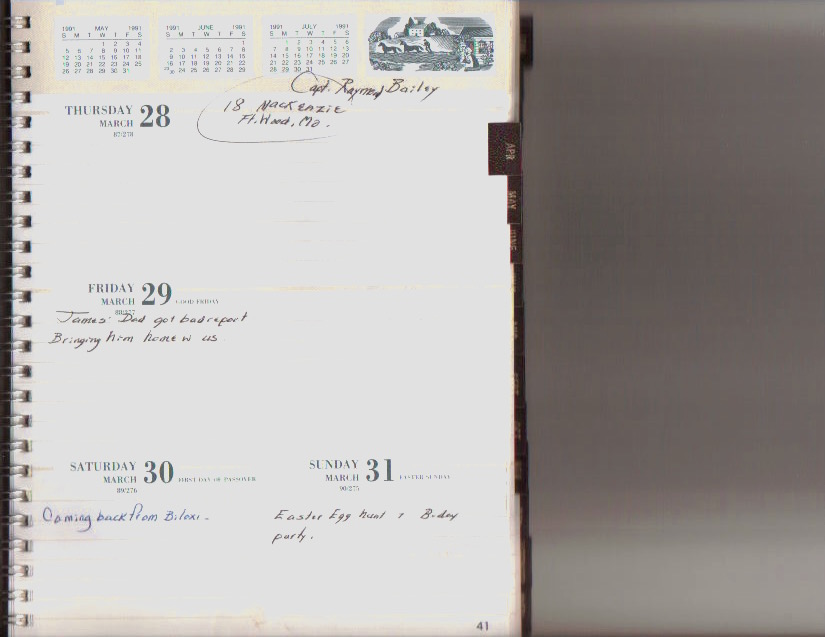 1991 MAY 1991
S M T W T F S
1 2 3 4
5 6 7 8 9 10 11
12 13 14 15 16 17 18
19 20 21 22 23 24 25
26 27 28 29 30 31
1991 JUNE 1991
S M T W T F S
1
2 3 4 5 6 7 8
9 10 11 12 13 14 15
16 17 18 19 20 21 22
23/30 24 25 26 27 28 29
1991 JULY 1991
S M T W T F S
1 2 3 4 5 6
7 8 9 10 11 12 13
14 15 16 17 18 19 20
21 22 23 24 25 26 27
28 29 30 31
Capt. Raymond Bailey
18 Mackenzie
Ft. Wood, Mo.
THURSDAY 28
MARCH
87/278
APR
MAY
JUNE
FRIDAY 29
MARCH GOOD FRIDAY
88/277
James' Dad got bad report
Bringing him home w us
SATURDAY 30
MARCH FIRST DAY OF PASSOVER
89/276
Coming back from Biloxi.
SUNDAY 31
MARCH EASTER SUNDAY
90/275
Easter Egg hunt & B-day
party.
41